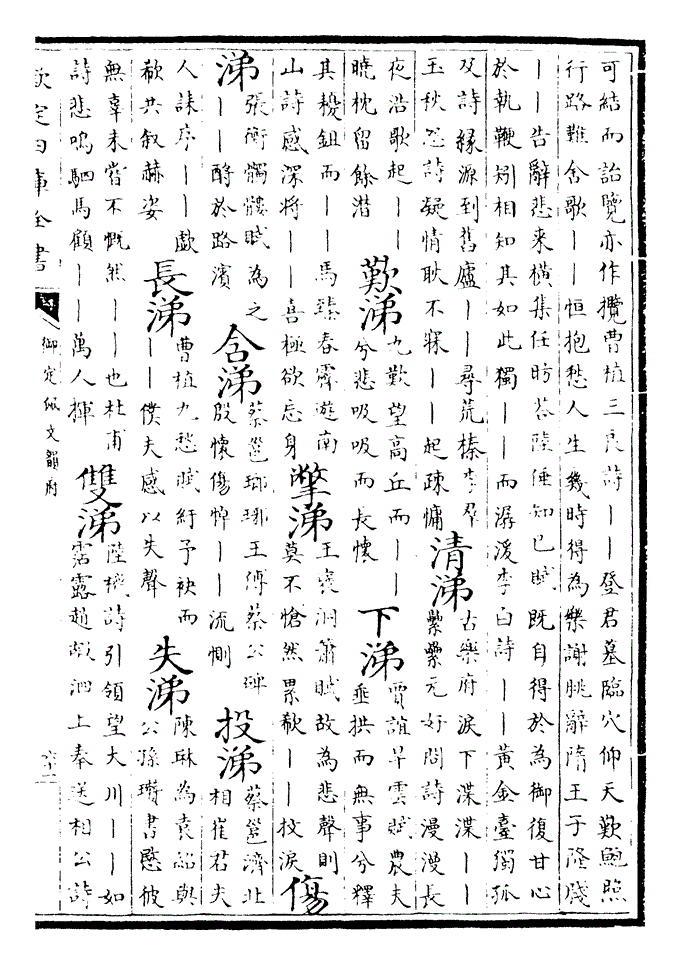 可結而詒覽亦作攬曹植三良詩——登君墓臨穴仰天歎鮑照
行路難舍歌——恒抱愁人生幾時得為樂謝朓辭隋王子隆牋
——告辭悲来橫集任昉荅陸倕知己賦既自得於為御復甘心
於執鞭矧相知其如此獨——而潺湲李白詩——黃金臺獨孤
及詩緣源到舊廬——尋荒榛李羣
玉秋怨詩疑情耿不寐——起疎慵
清涕
古樂府淚下渫渫——
纍纍元好問詩漫漫長
夜浩歌起——
曉枕留餘潸
歎涕
九歎望高丘而——
兮悲吸吸而長懷
下涕
賈誼旱雲賦農夫
垂拱而無事兮釋
其耰鉏而——馬臻春霽遊南
山詩感深將——喜極欲忘身
撆涕
王褒洞簫賦故為悲聲則
莫不愴然累欷——抆淚
傷
涕
張衡髑髏賦為之
——酹於路濱
含涕
蔡邕瑯琊王傅蔡公碑
殷懷傷悼——流惻
投涕
蔡邕濟北
相崔君夫
人誄序——歔
欷共叙赫姿
長涕
曹植九愁賦紆予袂而
——僕夫感以失聲
失涕
陳琳為袁紹與
公孫瓚書愍彼
無辜未嘗不慨然——也杜甫
詩悲鳴駟馬顧——萬人揮
雙涕
陸機詩引領望大川——如
霑露趙嘏泗上奉送相公詩
欽定四庫全書
御定佩文韻府